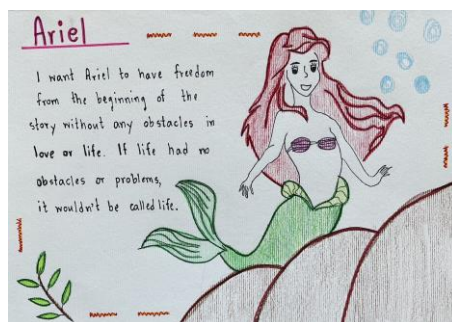 Ariel
I want Ariel to have freedom
from the beginning of the
story without any obstacles in
love or life. If life had no
obstacles or problems,
it wouldn't be called life.